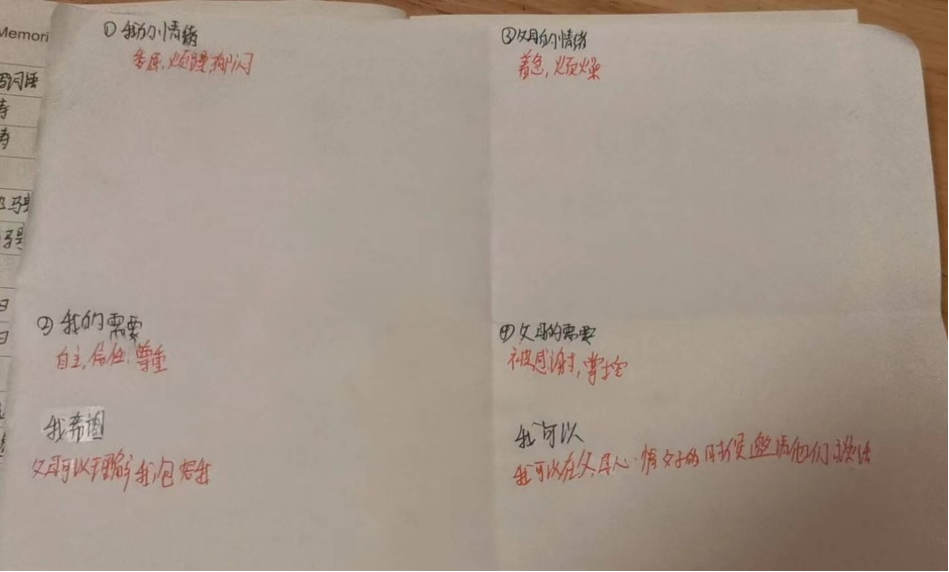 Memori
①我的情绪
委屈,烦躁,郁闷
②我的需要
自主,信任,尊重
我希望
父母可以理解我,包容我
③父母的情绪
着急,烦燥
④父母的需要
被感谢,掌控
我可以
我可以在父母心情好的时候邀请他们谈话